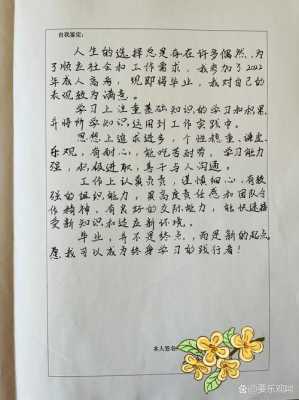 自我鉴定:
人生的选择总是存在许多偶然,为
了顺应社会和工作需求,我参加了2022
年成人高考,现即将毕业,我对自己的
表现较为满意。
学习上注重基础知识的学习和积累,
并将所学知识运用到工作实践中。
思想上追求进步,个性稳重、谦虚、
乐观,有耐心,能吃苦耐劳,学习能力
强,积极进取,善于与人沟通。
工作上认真负责,谨慎细心,有较
强的组织能力,最高度责任感和团队合
作精神,有良好的交际能力,能快速接
受新知识和适应新环境。
毕业,并不是终点,而是新的起点,
愿我可以成为终身学习的践行者!
本人签名